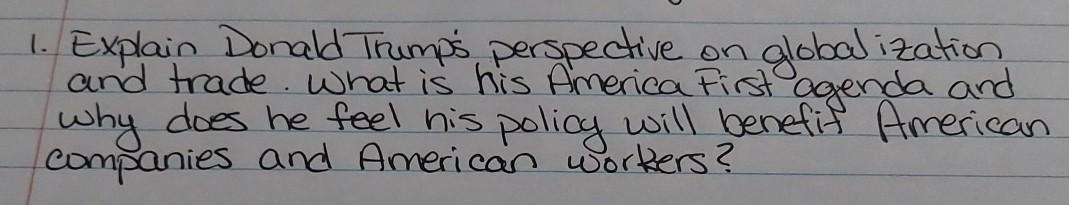 1. Explain Donald Trump's perspective on globalization
and trade. What is his America First agenda and
why does he feel his policy will benefit American
companies and American workers?